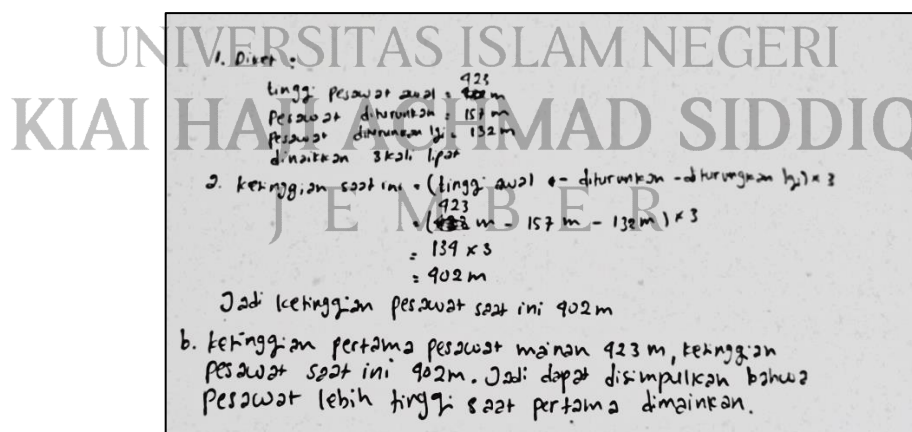 UNIVERSITAS ISLAM NEGERI
KIAI HAJI ACHMAD SIDDIQ
JEMBER
1. Diket :
tinggi pesawat awal = 423 m
Pesawat diturunkan = 157 m
Pesawat diturunkan lgi = 132 m
dinaikkan 3 kali lipat
2. ketinggian saat ini = (tinggi awal - diturunkan - diturungkan lgi) × 3
= (423 m - 157 m - 132 m) × 3
= 134 × 3
= 402 m
Jadi ketinggian pesawat saat ini 402 m
b. ketinggian pertama pesawat mainan 423 m, ketinggian
pesawat saat ini 402 m. Jadi dapat disimpulkan bahwa
Pesawat lebih tinggi saat pertama dimainkan.